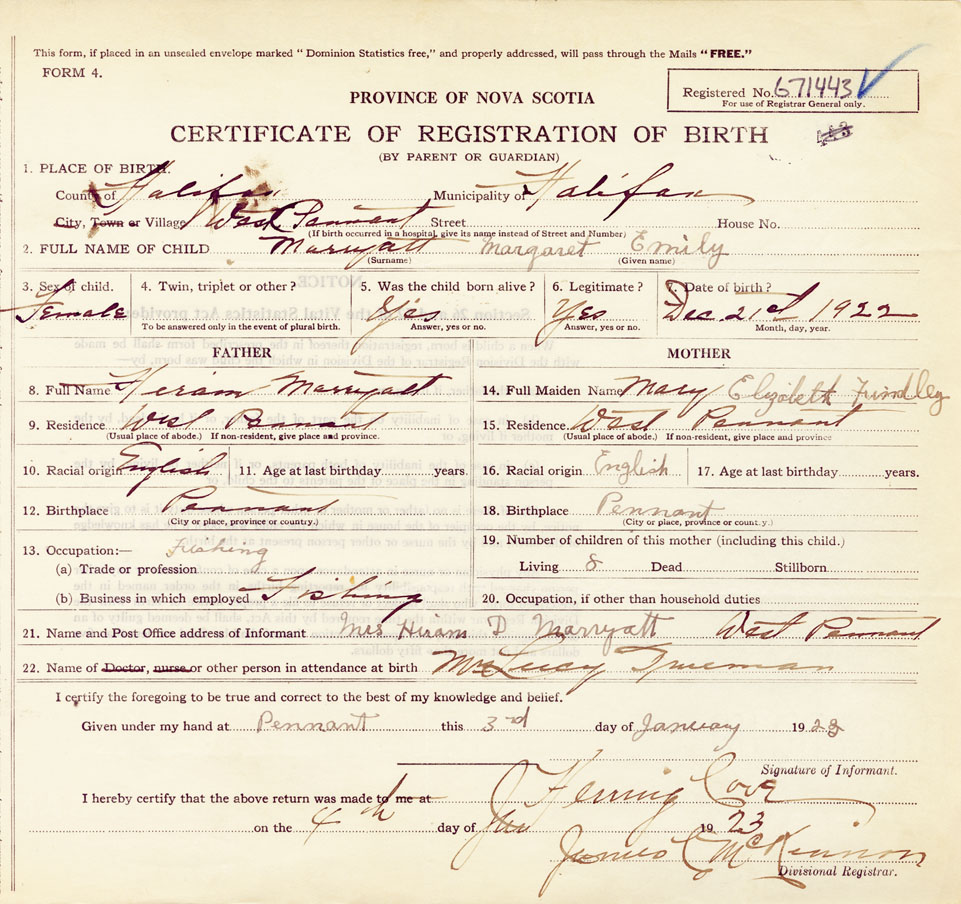 This form, if placed in an unsealed envelope marked "Dominion Statistics free," and properly addressed, will pass through the Mails "FREE."
FORM 4.
Registered No. 671443
For use of Registrar General only.
PROVINCE OF NOVA SCOTIA
CERTIFICATE OF REGISTRATION OF BIRTH
(BY PARENT OR GUARDIAN)
1. PLACE OF BIRTH.
County of Halifax Municipality of Halifax
City, Town or Village West Pennant Street House No.
(If birth occurred in a hospital, give its name instead of Street and Number)
2. FULL NAME OF CHILD Marryatt Margaret Emily
(Surname) (Given name)
3. Sex of child. 4. Twin, triplet or other? 5. Was the child born alive? 6. Legitimate? 7. Date of birth?
Female Yes Yes Dec. 21st 1922
To be answered only in the event of plural birth. Answer, yes or no. Answer, yes or no. Month, day, year.
FATHER MOTHER
8. Full Name Hiram Marryatt 14. Full Maiden Name Mary Elizabeth
9. Residence West Pennant 15. Residence West Pennant
(Usual place of abode.) If non-resident, give place and province. (Usual place of abode.) If non-resident, give place and province
10. Racial origin English 11. Age at last birthday years. 16. Racial origin English 17. Age at last birthday years.
12. Birthplace Pennant 18. Birthplace Pennant
(City or place, province or country.) (City or place, province or country.)
13. Occupation:— Fishing 19. Number of children of this mother (including this child.)
(a) Trade or profession Living 8 Dead Stillborn
(b) Business in which employed Fishing 20. Occupation, if other than household duties
21. Name and Post Office address of Informant Mrs Hiram D Marryatt West Pennant
22. Name of Doctor, nurse or other person in attendance at birth Mrs Lucy Trueman
I certify the foregoing to be true and correct to the best of my knowledge and belief.
Given under my hand at Pennant this 3rd day of January 1923
Signature of Informant.
I hereby certify that the above return was made to me at Herring Cove
on the 4th day of Jan 1923
James C McKinnon
Divisional Registrar.